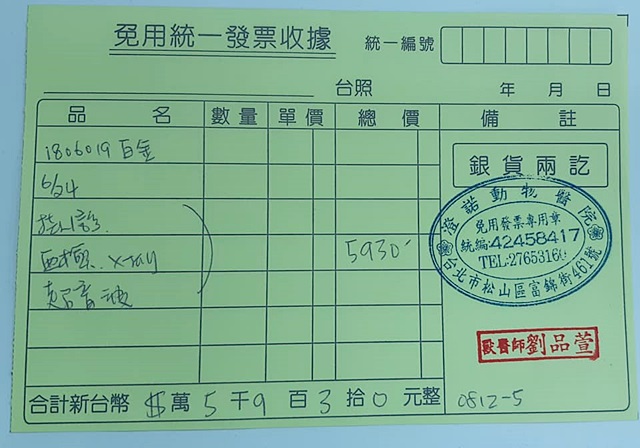 免用統一發票收據
統一編號
台照 年 月 日
品名 數量 單價 總價 備註
1806019 白金
6/24
掛診
血檢. X-ray 5930
超音波
銀貨兩訖
澄諾動物醫院
免用發票專用章
統編:42458417
TEL:2765316
台北市松山區富錦街461號
獸醫師劉品萱
合計新台幣 $ 萬 5 千 9 百 3 拾 0 元整 0812-5